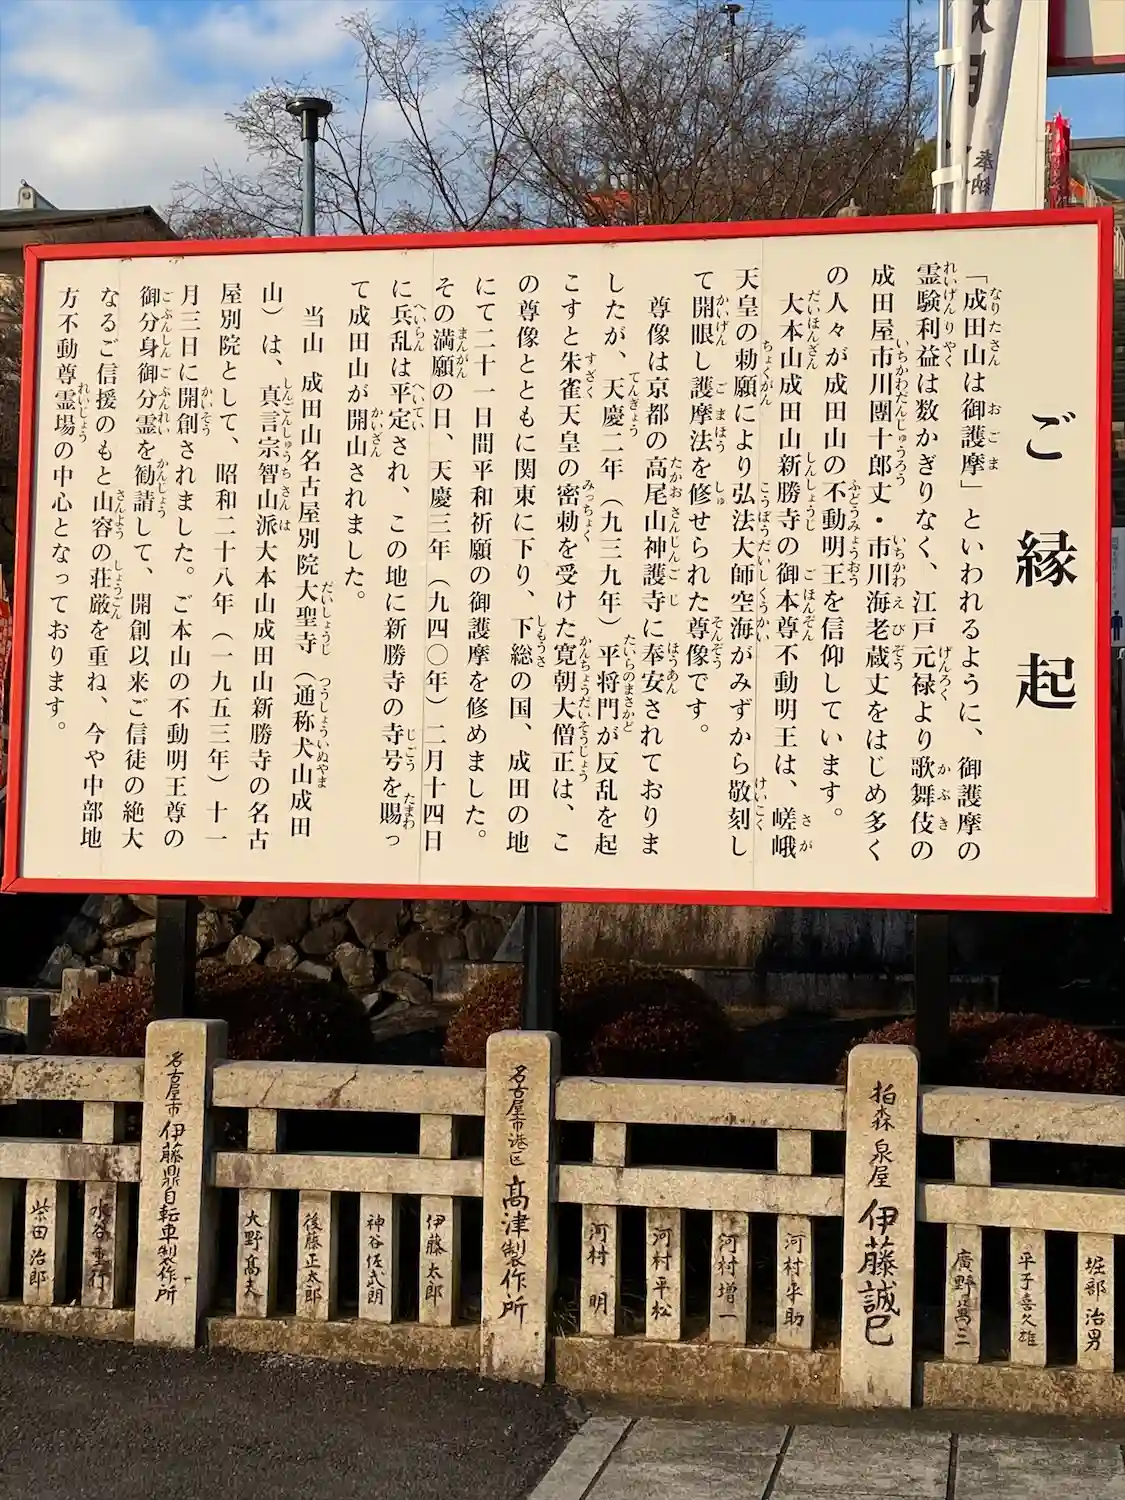 ご縁起
「成田山は御護摩」といわれるように、御護摩の
霊験利益は数かぎりなく、江戸元禄より歌舞伎の
成田屋市川團十郎丈・市川海老蔵丈をはじめ多く
の人々が成田山の不動明王を信仰しています。
大本山成田山新勝寺の御本尊不動明王は、嵯峨
天皇の勅願により弘法大師空海がみずから敬刻し
て開眼し護摩法を修せられた尊像です。
尊像は京都の高尾山神護寺に奉安されておりま
したが、天慶二年（九三九年）平将門が反乱を起
こすと朱雀天皇の密勅を受けた寛朝大僧正は、こ
の尊像とともに関東に下り、下総の国、成田の地
にて二十一日間平和祈願の御護摩を修めました。
その満願の日、天慶三年（九四〇年）二月十四日
に兵乱は平定され、この地に新勝寺の寺号を賜っ
て成田山が開山されました。
当山 成田山名古屋別院大聖寺（通称犬山成田
山）は、真言宗智山派大本山成田山新勝寺の名古
屋別院として、昭和二十八年（一九五三年）十一
月三日に開創されました。ご本山の不動明王尊の
御分身御分霊を勧請して、開創以来ご信徒の絶大
なるご信援のもと山容の荘厳を重ね、今や中部地
方不動尊霊場の中心となっております。
奉納
堀部治男
平子喜久雄
廣野萬三
柏森 泉屋 伊藤誠巳
河村平助
河村増一
河村平松
河村 明
名古屋市港区 髙津製作所
伊藤太郎
神谷佐武朗
後藤正太郎
大野髙夫
名古屋市 伊藤鼎自転車製作所
水谷重行
柴田治郎